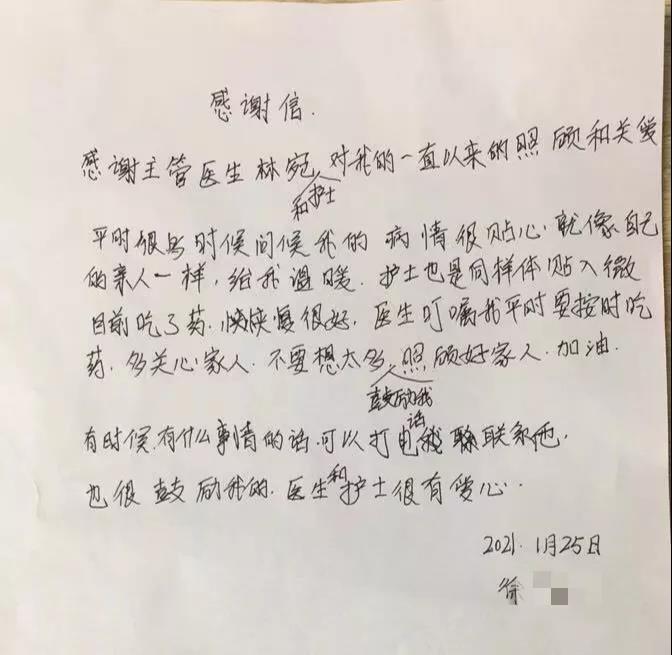 感谢信.
感谢主管医生林宛和护士对我的一直以来的照顾和关爱
平时很多时候问候我的病情很贴心.就像自己
的亲人一样,给我温暖.护士也是同样体贴入微
目前吃了药.恢复很好.医生叮嘱我平时要按时吃
药.多关心家人.不要想太多.鼓励我照顾好家人.加油.
有时候.有什么事情的话.可以打电话联系他.
也很鼓励我的.医生和护士很有爱心.
2021.1月25日
徐